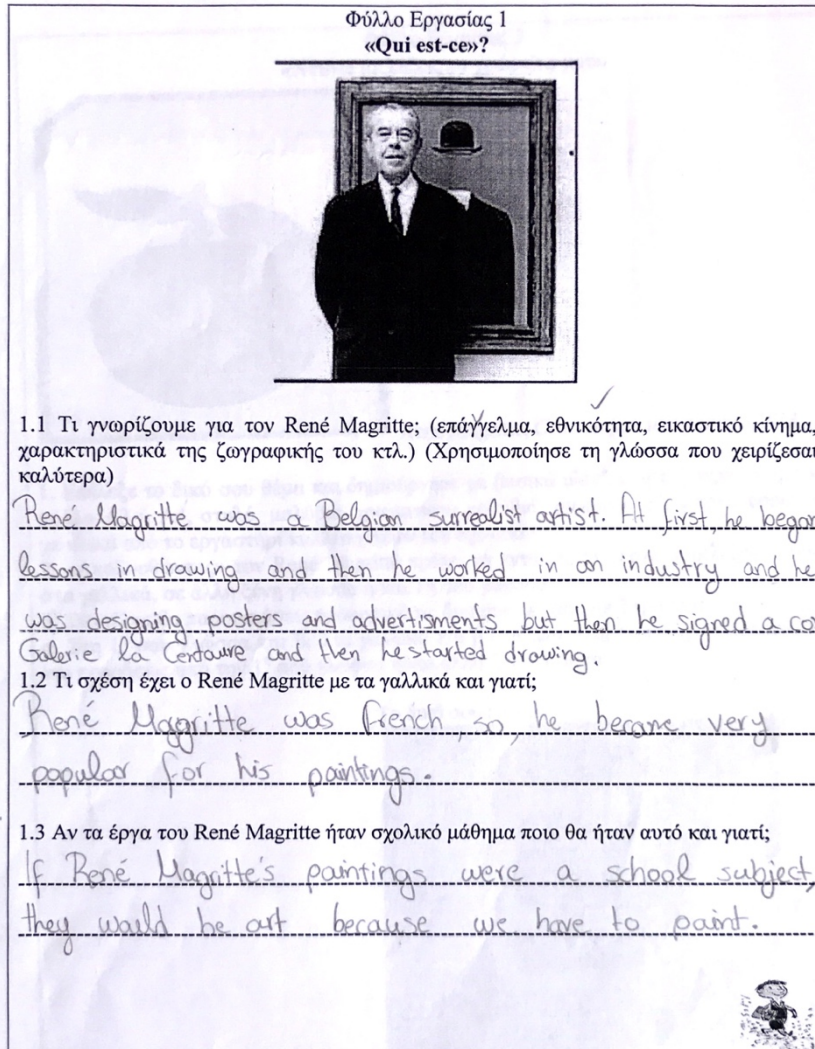 Φύλλο Εργασίας 1
«Qui est-ce»?
1.1 Τι γνωρίζουμε για τον René Magritte; (επάγγελμα, εθνικότητα, εικαστικό κίνημα,
χαρακτηριστικά της ζωγραφικής του κτλ.) (Χρησιμοποίησε τη γλώσσα που χειρίζεσαι
καλύτερα)
René Magritte was a Belgian surrealist artist. At first, he began
lessons in drawing and then he worked in an industry and he
was designing posters and advertisments but then he signed a co
Galerie la Centaure and then he started drawing.
1.2 Τι σχέση έχει ο René Magritte με τα γαλλικά και γιατί;
René Magritte was french, so, he became very
popular for his paintings.
1.3 Αν τα έργα του René Magritte ήταν σχολικό μάθημα ποιο θα ήταν αυτό και γιατί;
If René Magritte's paintings were a school subject,
they would be art because we have to paint.